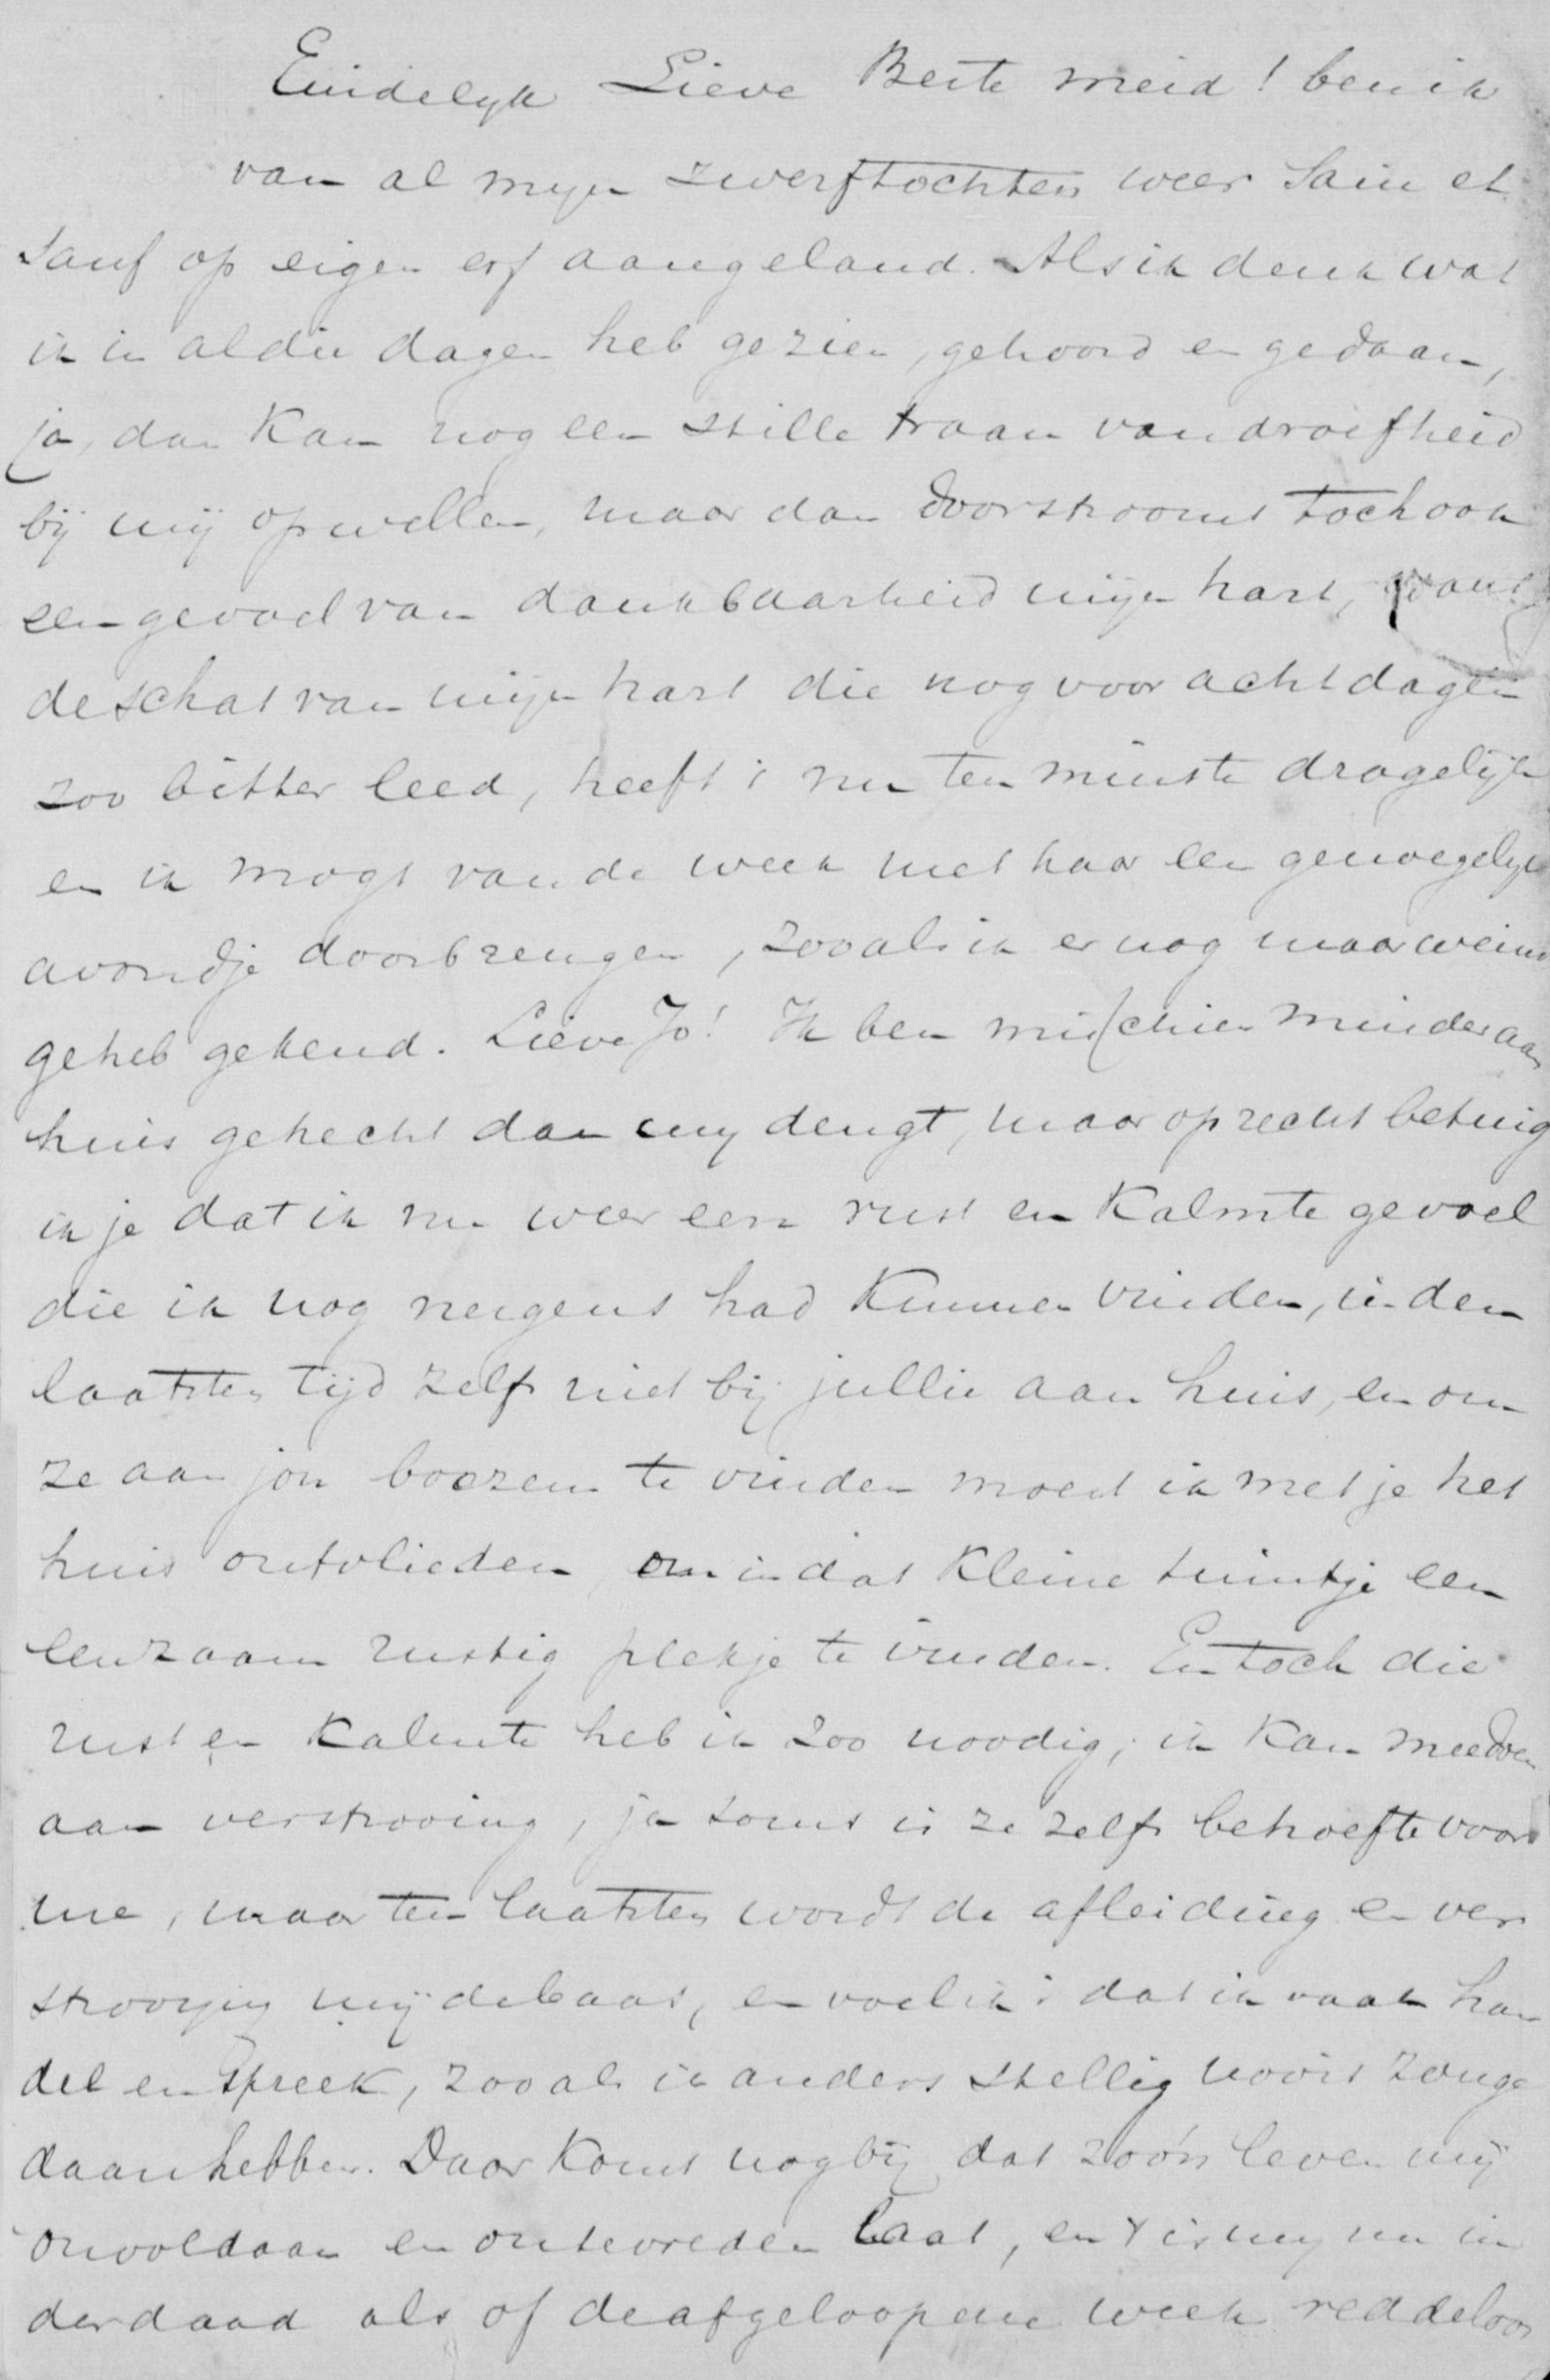 Eindelyk Lieve Beste meid! ben ik
van al myn zwerftochten weer Sain et
Sauf op eigen erf aangeland. Als ik denk wat
ik in al die dagen heb gezien, gehoord en gedaan,
ja, dan kan nog een stille traan van droefheid
bij mij opwellen, maar dan doorstroomt toch ook
een gevoel van dankbaarheid mijn hart, want
de schat van mijn hart die nog voor acht dagen
zoo bitter leed, heeft 't nu ten minste dragelijk
en ik mogt van de week met haar een genoegelyk
avondje doorbrengen, zooals ik er nog maar weinig
geheb gekend. Lieve Jo! Ik ben misschien minder aan
huis gehecht dan my deugt, maar oprecht betuig
ik je dat ik nu weer een rust en kalmte gevoel
die ik nog nergens had kunnen vinden, in den
laatsten tijd zelfs niet bij jullie aan huis, en om
ze aan jou boezem te vinden moest ik met je het
huis ontvlieden, om in dat kleine tuintje een
eenzaam rustig plekje te vinden. En toch die
rust en kalmte heb ik zoo noodig; ik kan meedoen
aan verstrooing, ja soms is ze zelfs behoefte voor
me, maar ten laatsten wordt de afleiding en ver
strooying mij de baas, en voel ik 't dat ik vaak han
del en spreek, zooals ik anders stellig nooit zou ge
daan hebben. Daar komt nog bij dat zoo'n leven mij
onvoldaan en ontevreden laat, en 't is my nu in
derdaad als of de afgeloopene week reddeloos